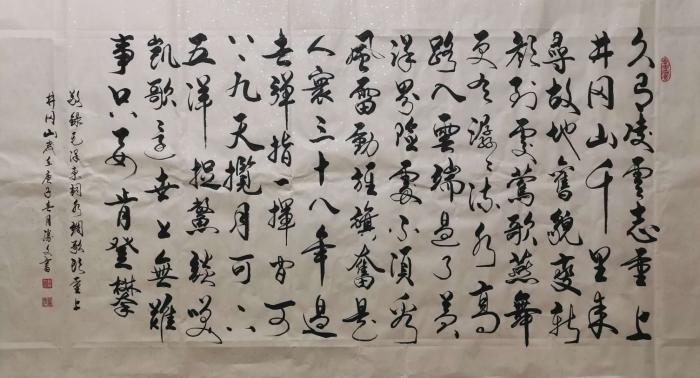 久有凌雲志重上
井冈山千里来
尋故地舊貌變新
顔到處鶯歌燕舞
更有潺々流水高
路入雲端過了黄
洋界險處不須看
風雷動旌旗奮是
人寰三十八年過
去彈指一揮間可
上九天攬月可下
五洋捉鱉談笑
凱歌還世上無難
事只要肯登攀
敬錄毛澤東詞水調歌頭重上
井冈山歲在庚子春月書